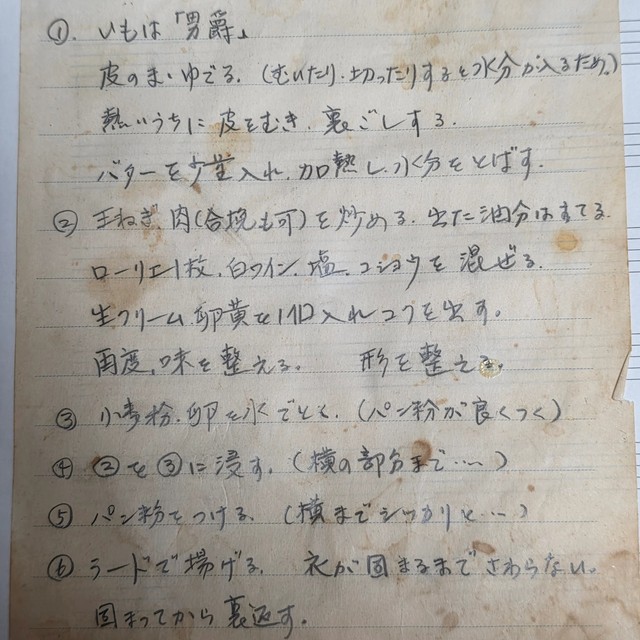 ①. いもは「男爵」
皮のまゝゆでる。(むいたり、切ったりすると水分が入るため。)
熱いうちに皮をむき、裏ごしする。
バターを少量入れ、加熱し、水分をとばす。
② 玉ねぎ、肉(合挽も可)を炒める。出た油分はすてる。
ローリエ1枚、白ワイン、塩、コショウを混ぜる。
生クリーム、卵黄を1コ入れコクを出す。
再度、味を整える。 形を整える。
③ 小麦粉、卵を水でとく。(パン粉が良くつく)
④ ②を③に浸す。(横の部分まで……)
⑤ パン粉をつける。(横までシッカリと……)
⑥ ラードで揚げる。 衣が固まるまでさわらない。
固まってから裏返す。